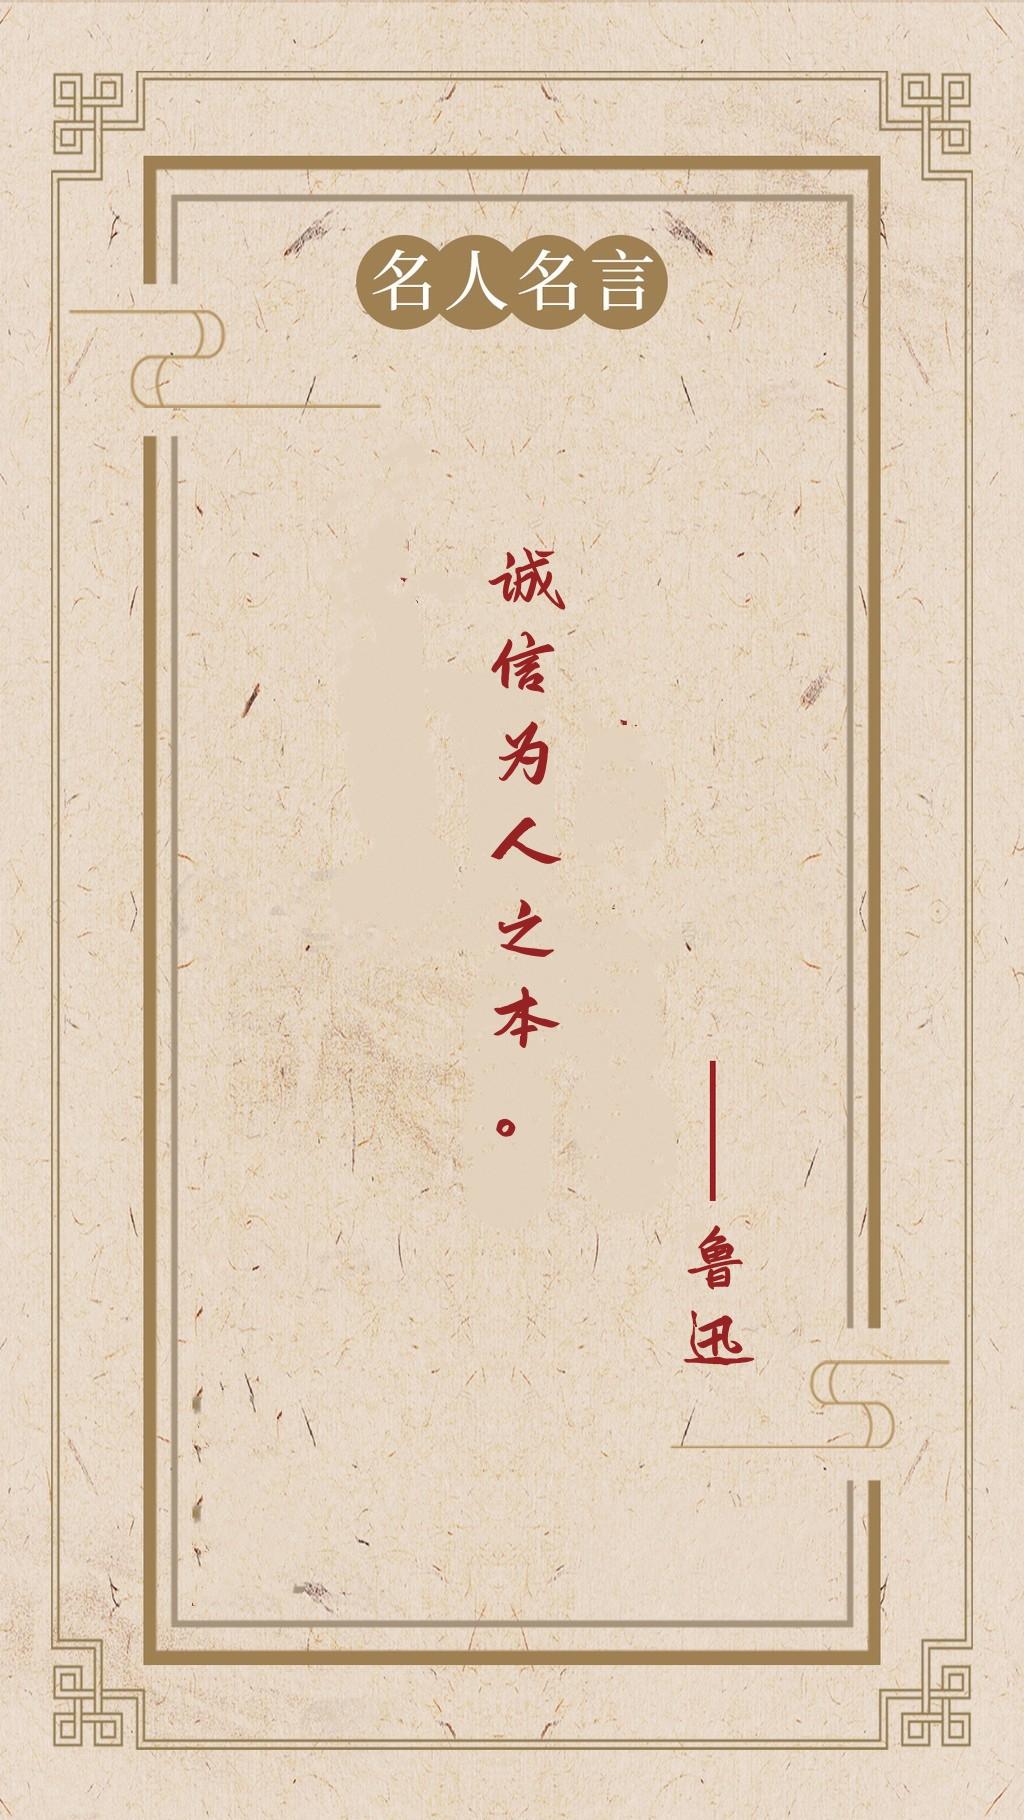 名人名言
诚信为人之本。
——鲁迅